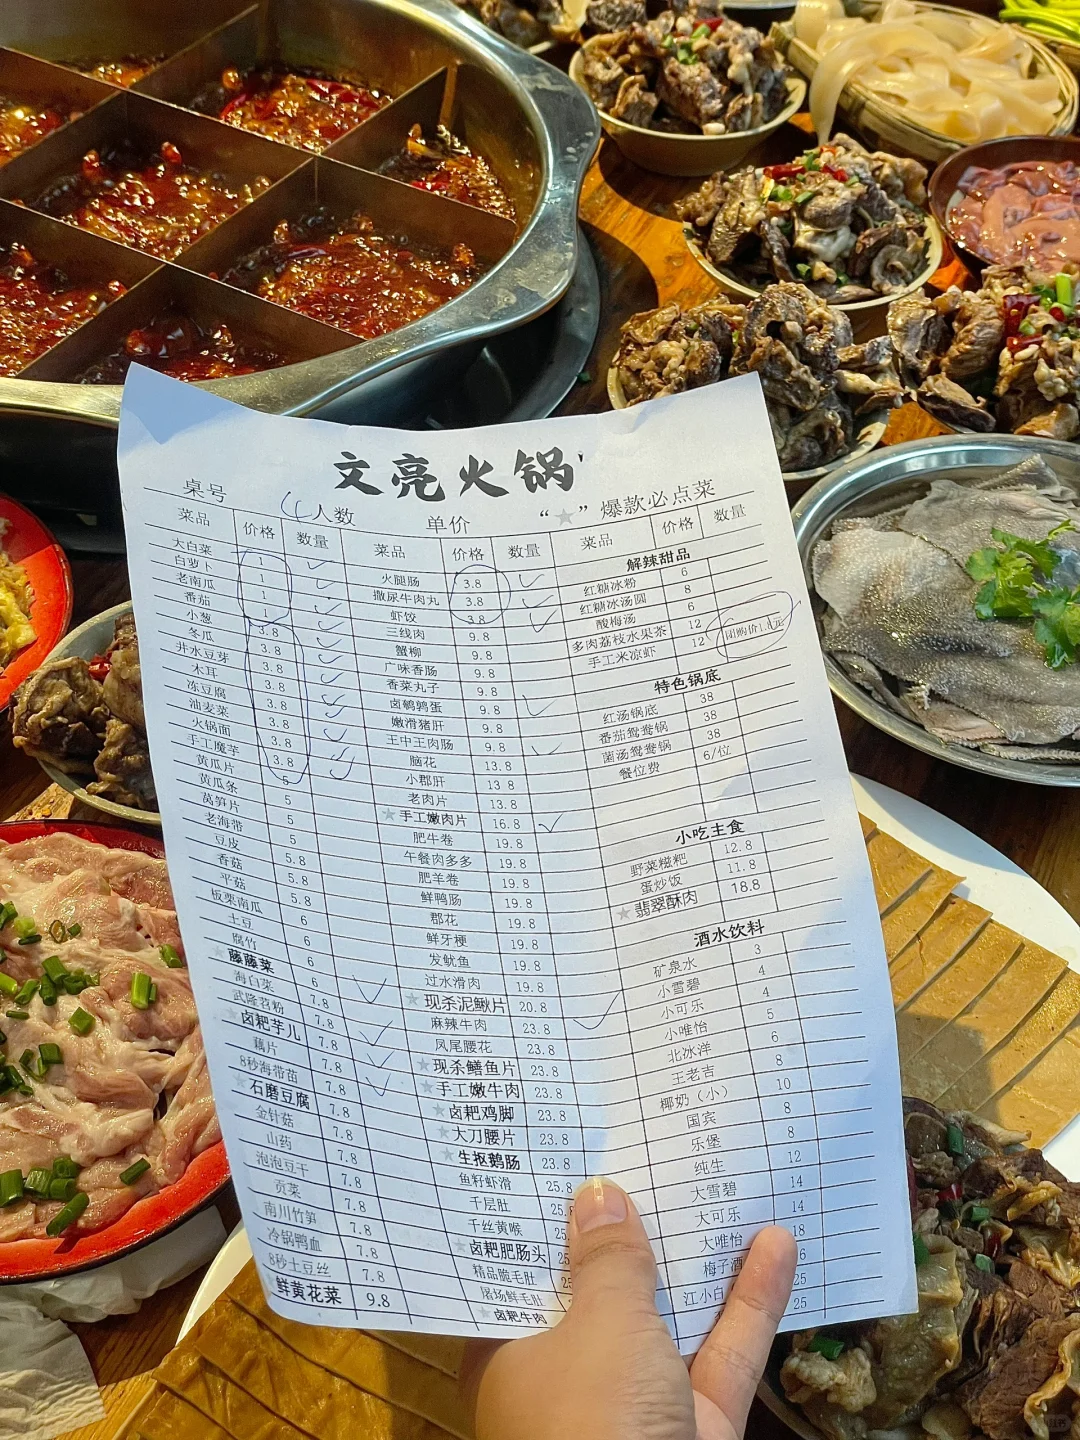 文亮火锅
桌号 4 人数 单价 “★”爆款必点菜
菜品 价格 数量
大白菜 1
白萝卜 1
老南瓜 1
番茄 1
小葱 3.8
冬瓜 3.8
井水豆芽 3.8
木耳 3.8
冻豆腐 3.8
油麦菜 3.8
火锅面 3.8
手工魔芋 3.8
黄瓜片 5
黄瓜条 5
莴笋片 5
老海带 5
豆皮 5.8
香菇 5.8
平菇 5.8
板栗南瓜 6
土豆 6
腐竹 6
★藤藤菜 6
海白菜 7.8
武隆苕粉 7.8
★卤耙芋儿 7.8
藕片 7.8
8秒海带苗 7.8
★石磨豆腐 7.8
金针菇 7.8
山药 7.8
泡泡豆干 7.8
贡菜 7.8
南川竹笋 7.8
冷锅鸭血 7.8
8秒土豆丝 7.8
鲜黄花菜 9.8
菜品 价格 数量
火腿肠 3.8
撒尿牛肉丸 3.8
虾饺 3.8
三线肉 9.8
蟹柳 9.8
广味香肠 9.8
香菜丸子 9.8
卤鹌鹑蛋 9.8
嫩滑猪肝 9.8
王中王肉肠 9.8
脑花 13.8
小郡肝 13.8
老肉片 13.8
★手工嫩肉片 16.8
肥牛卷 19.8
午餐肉多多 19.8
肥羊卷 19.8
鲜鸭肠 19.8
郡花 19.8
鲜牙梗 19.8
发鱿鱼 19.8
过水滑肉 19.8
★现杀泥鳅片 20.8
麻辣牛肉 23.8
凤尾腰花 23.8
★现杀鳝鱼片 23.8
★手工嫩牛肉 23.8
★卤耙鸡脚 23.8
★大刀腰片 23.8
★生抠鹅肠 23.8
鱼籽虾滑 25.8
千层肚
千丝黄喉
★卤耙肥肠头
精品脆毛肚
屠场鲜毛肚
★卤耙牛肉
菜品 价格 数量
解辣甜品
红糖冰粉 6
红糖冰汤圆 8
酸梅汤 6
多肉荔枝水果茶 12
手工米凉虾 12
特色锅底
红汤锅底 38
番茄鸳鸯锅 38
菌汤鸳鸯锅 38
餐位费 6/位
小吃主食
野菜糍粑 12.8
蛋炒饭 11.8
★翡翠酥肉 18.8
酒水饮料
矿泉水 3
小雪碧 4
小可乐 4
小唯怡 5
北冰洋 6
王老吉 8
椰奶（小） 10
国宾 8
乐堡 8
纯生 12
大雪碧 14
大可乐 14
大唯怡 18
梅子酒
江小白 25
25